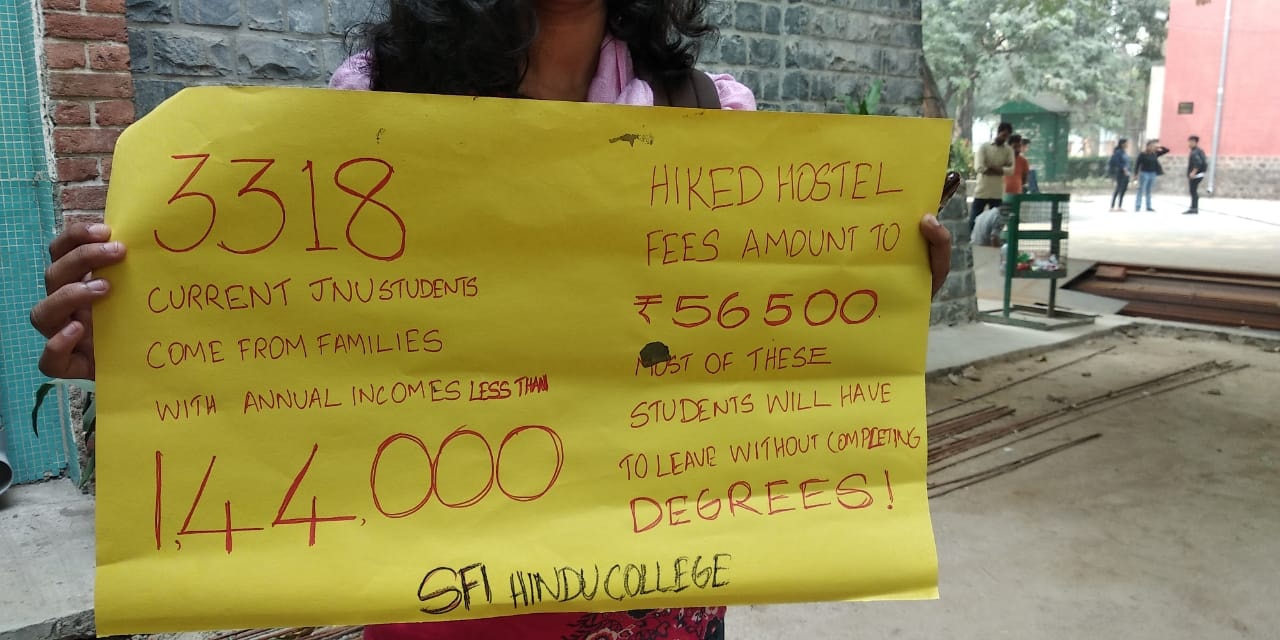 3318
CURRENT JNU STUDENTS
COME FROM FAMILIES
WITH ANNUAL INCOMES LESS THAN
1,44,000
HIKED HOSTEL
FEES AMOUNT TO
₹56500.
MOST OF THESE
STUDENTS WILL HAVE
TO LEAVE WITHOUT COMPLETING
DEGREES!
SFI HINDU COLLEGE